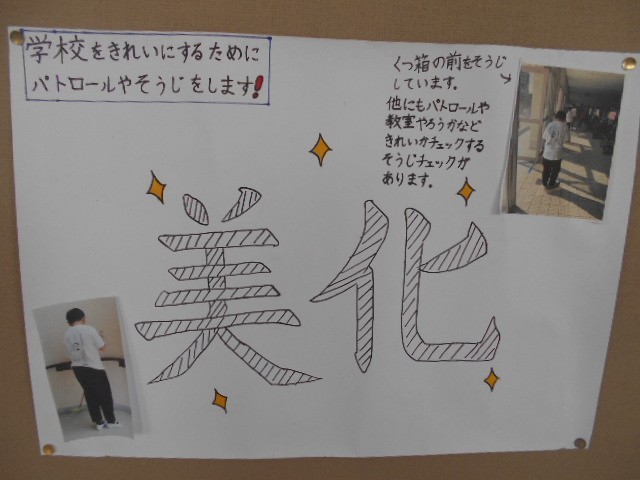 学校をきれいにするために
パトロールやそうじをします!
くつ箱の前をそうじ
しています。
他にもパトロールや
教室やろうかなど
きれいかチェックする
そうじチェックが
あります。
美化